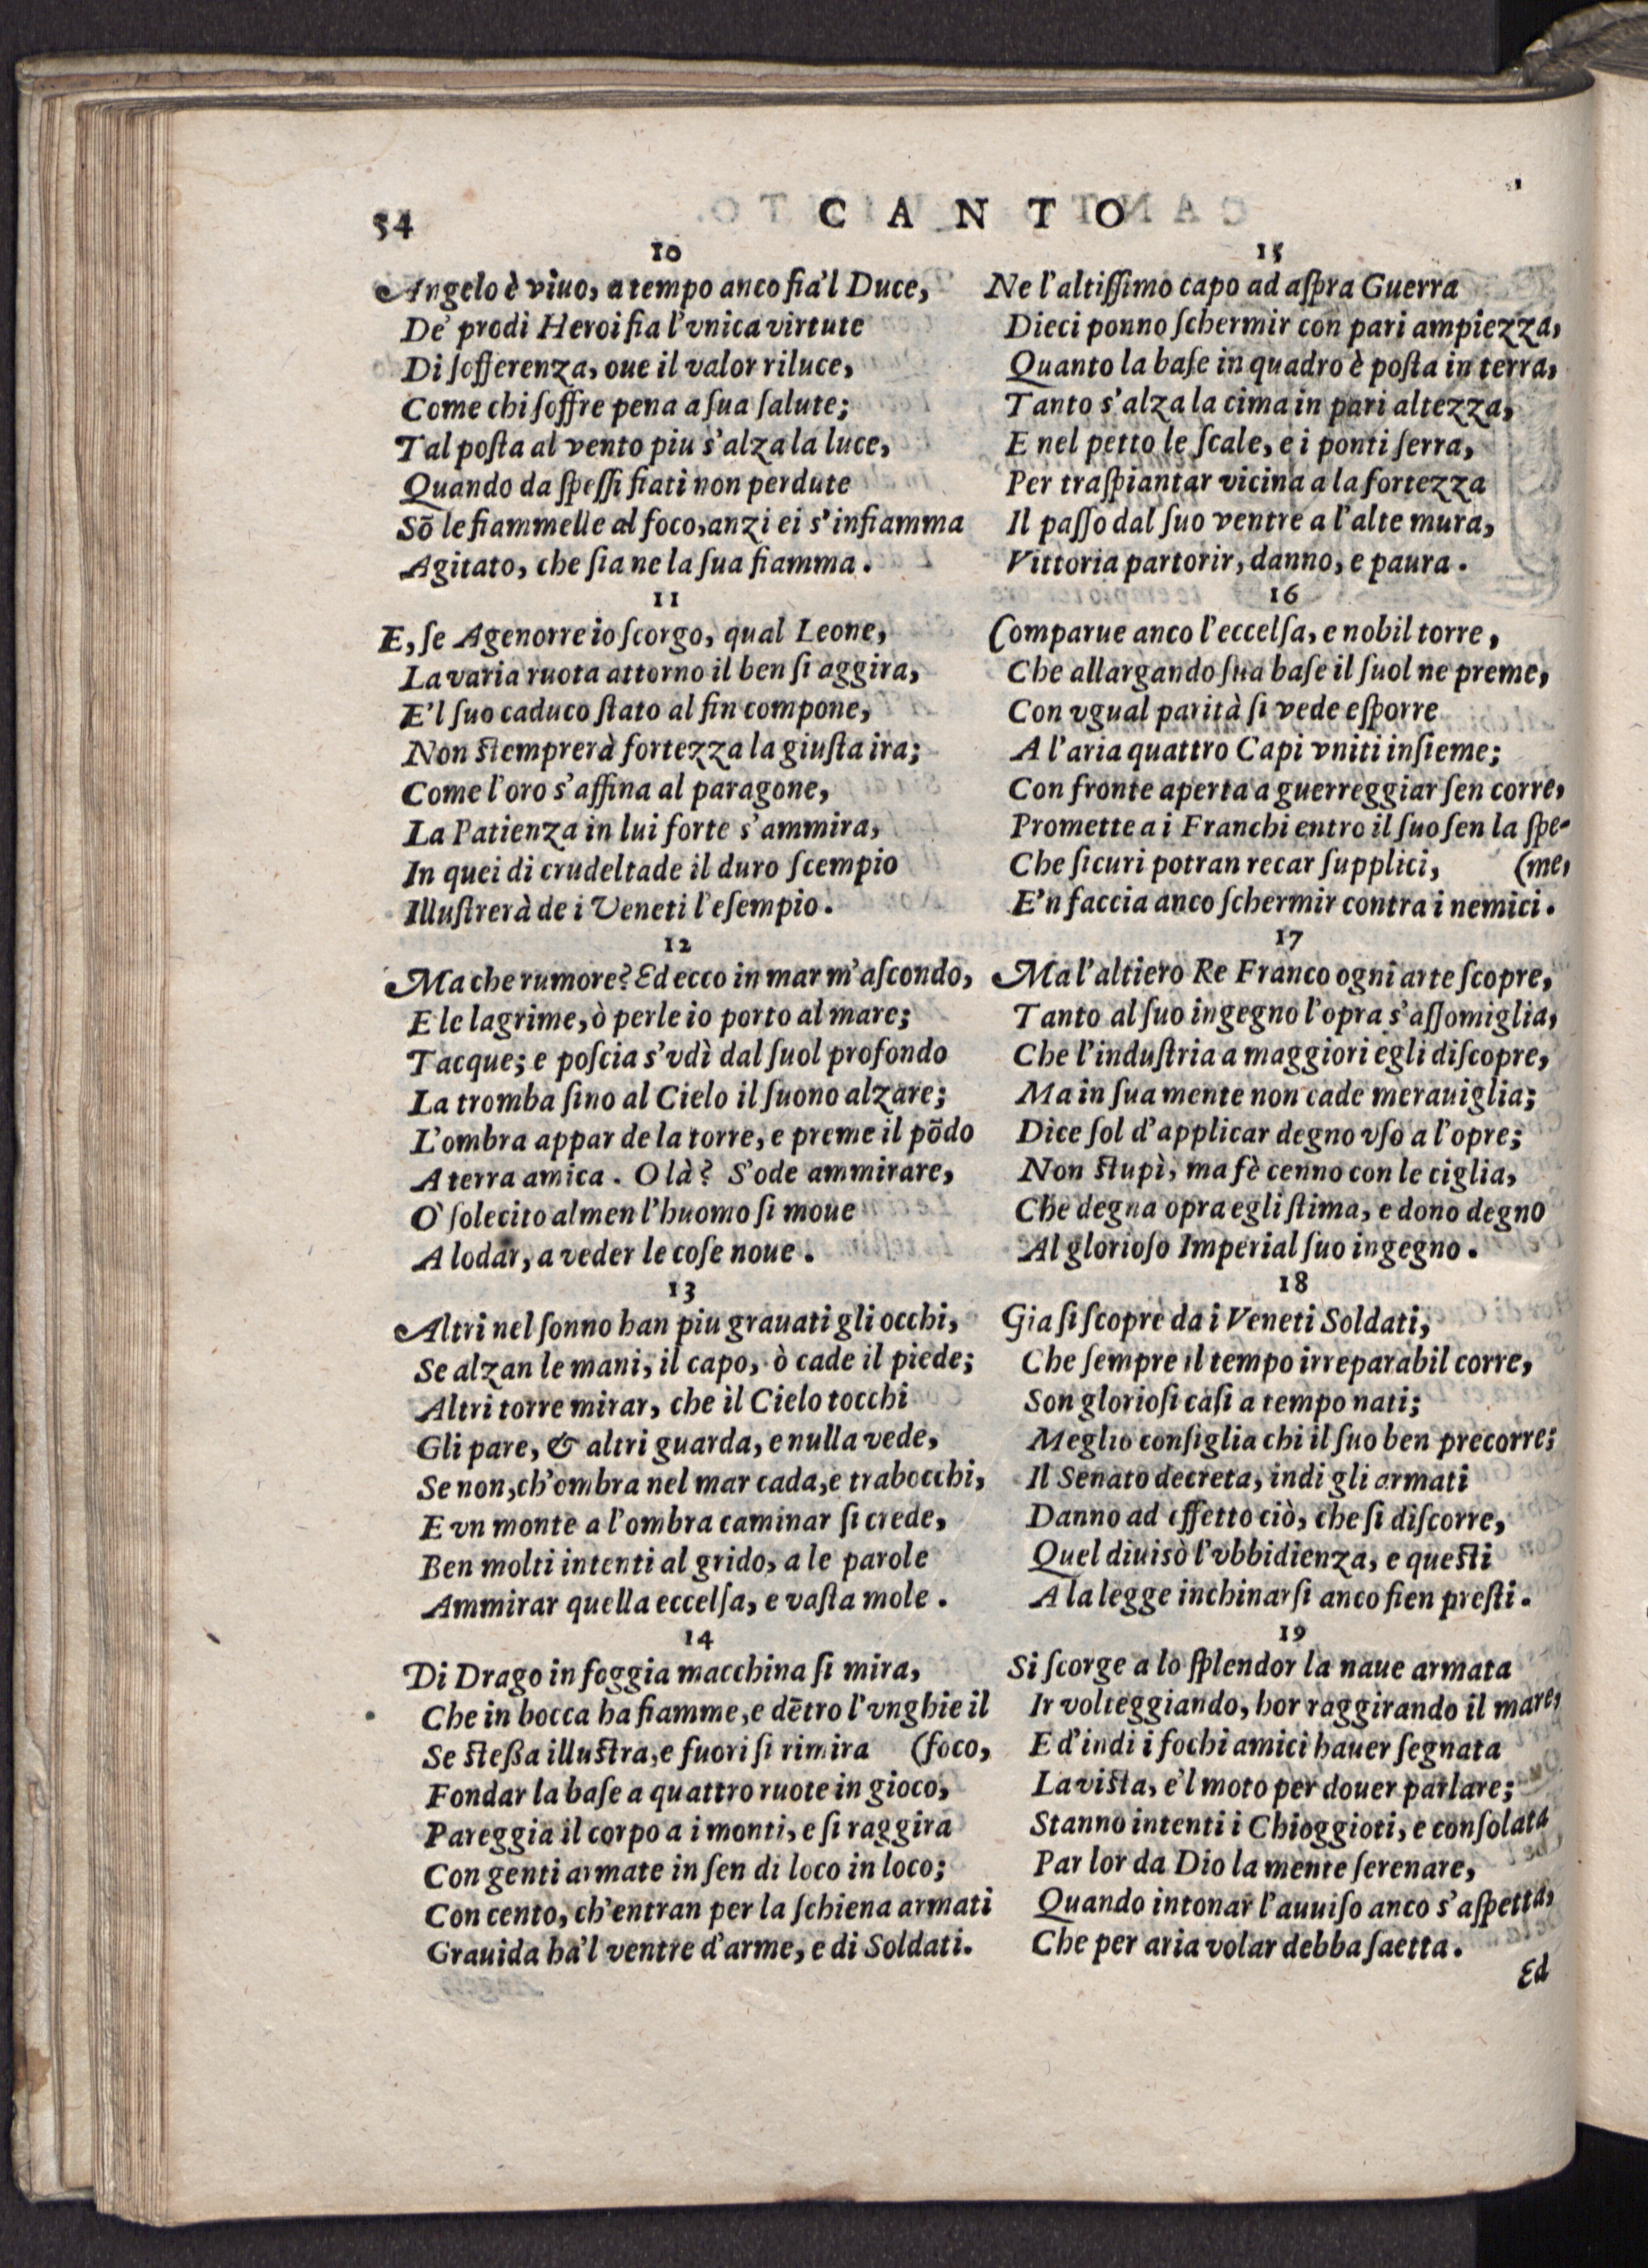 54
CANTO
10
Angelo è viuo, a tempo anco fia'l Duce,
De' prodi Heroi fia l'vnica virtute
Di ſofferenza, oue il valor riluce,
Come chi ſoffre pena a ſua ſalute;
Tal poſta al vento piu s'alza la luce,
Quando da ſpeſſi fiati non perdute
Sõ le fiammelle al foco, anzi ei s'infiamma
Agitato, che ſia ne la ſua fiamma.
11
E, ſe Agenorre io ſcorgo, qual Leone,
La varia ruota attorno il ben ſi aggira,
E'l ſuo caduco ſtato al fin compone,
Non ſtemprerà fortezza la giuſta ira;
Come l'oro s'affina al paragone,
La Patienza in lui forte s'ammira,
In quei di crudeltade il duro ſcempio
Illuſtrerà de i Veneti l'eſempio.
12
Ma che rumore? Ed ecco in mar m'aſcondo,
E le lagrime, ò perle io porto al mare;
Tacque; e poſcia s'vdì dal ſuol profondo
La tromba ſino al Cielo il ſuono alzare;
L'ombra appar de la torre, e preme il põdo
A terra amica. Olà? S'ode ammirare,
O' ſolecito almen l'huomo ſi moue
A lodar, a veder le coſe noue.
13
Altri nel ſonno han piu grauati gli occhi,
Se alzan le mani, il capo, ò cade il piede;
Altri torre mirar, che il Cielo tocchi
Gli pare, & altri guarda, e nulla vede,
Se non, ch'ombra nel mar cada, e trabocchi,
E vn monte a l'ombra caminar ſi crede,
Ben molti intenti al grido, a le parole
Ammirar quella eccelſa, e vaſta mole.
14
Di Drago in foggia macchina ſi mira,
Che in bocca ha fiamme, e dẽtro l'vnghie il
Se ſteßa illuſtra, e fuori ſi rimira (foco,
Fondar la baſe a quattro ruote in gioco,
Pareggia il corpo a i monti, e ſi raggira
Con genti armate in ſen di loco in loco;
Con cento, ch'entran per la ſchiena armati
Grauida ha'l ventre d'arme, e di Soldati.
15
Ne l'altiſſimo capo ad aſpra Guerra
Dieci ponno ſchermir con pari ampiezza,
Quanto la baſe in quadro è poſta in terra,
Tanto s'alza la cima in pari altezza,
E nel petto le ſcale, e i ponti ſerra,
Per traſpiantar vicina a la fortezza
Il paſſo dal ſuo ventre a l'alte mura,
Vittoria partorir, danno, e paura.
16
Comparue anco l'eccelſa, e nobil torre,
Che allargando ſua baſe il ſuol ne preme,
Con vgual parità ſi vede eſporre
A l'aria quattro Capi vniti inſieme;
Con fronte aperta a guerreggiar ſen corre,
Promette a i Franchi entro il ſuo ſen la ſpe-
Che ſicuri potran recar ſupplici, (me,
E'n faccia anco ſchermir contra i nemici.
17
Ma l'altiero Re Franco ogni arte ſcopre,
Tanto al ſuo ingegno l'opra s'aſſomiglia,
Che l'induſtria a maggiori egli diſcopre,
Ma in ſua mente non cade merauiglia;
Dice ſol d'applicar degno vſo a l'opre;
Non ſtupì, ma fè cenno con le ciglia,
Che degna opra egli ſtima, e dono degno
Al glorioſo Imperial ſuo ingegno.
18
Gia ſi ſcopre da i Veneti Soldati,
Che ſempre il tempo irreparabil corre,
Son glorioſi caſi a tempo nati;
Meglio conſiglia chi il ſuo ben precorre;
Il Senato decreta, indi gli armati
Danno ad effetto ciò, che ſi diſcorre,
Quel diuisò l'vbbidienza, e queſti
A la legge inchinarſi anco fien preſti.
19
Si ſcorge a lo ſplendor la naue armata
Ir volteggiando, hor raggirando il mare,
E d'indi i fochi amici hauer ſegnata
La viſta, e'l moto per douer parlare;
Stanno intenti i Chioggioti, e conſolata
Par lor da Dio la mente ſerenare,
Quando intonar l'auuiſo anco s'aſpetta,
Che per aria volar debba ſaetta.
Ed